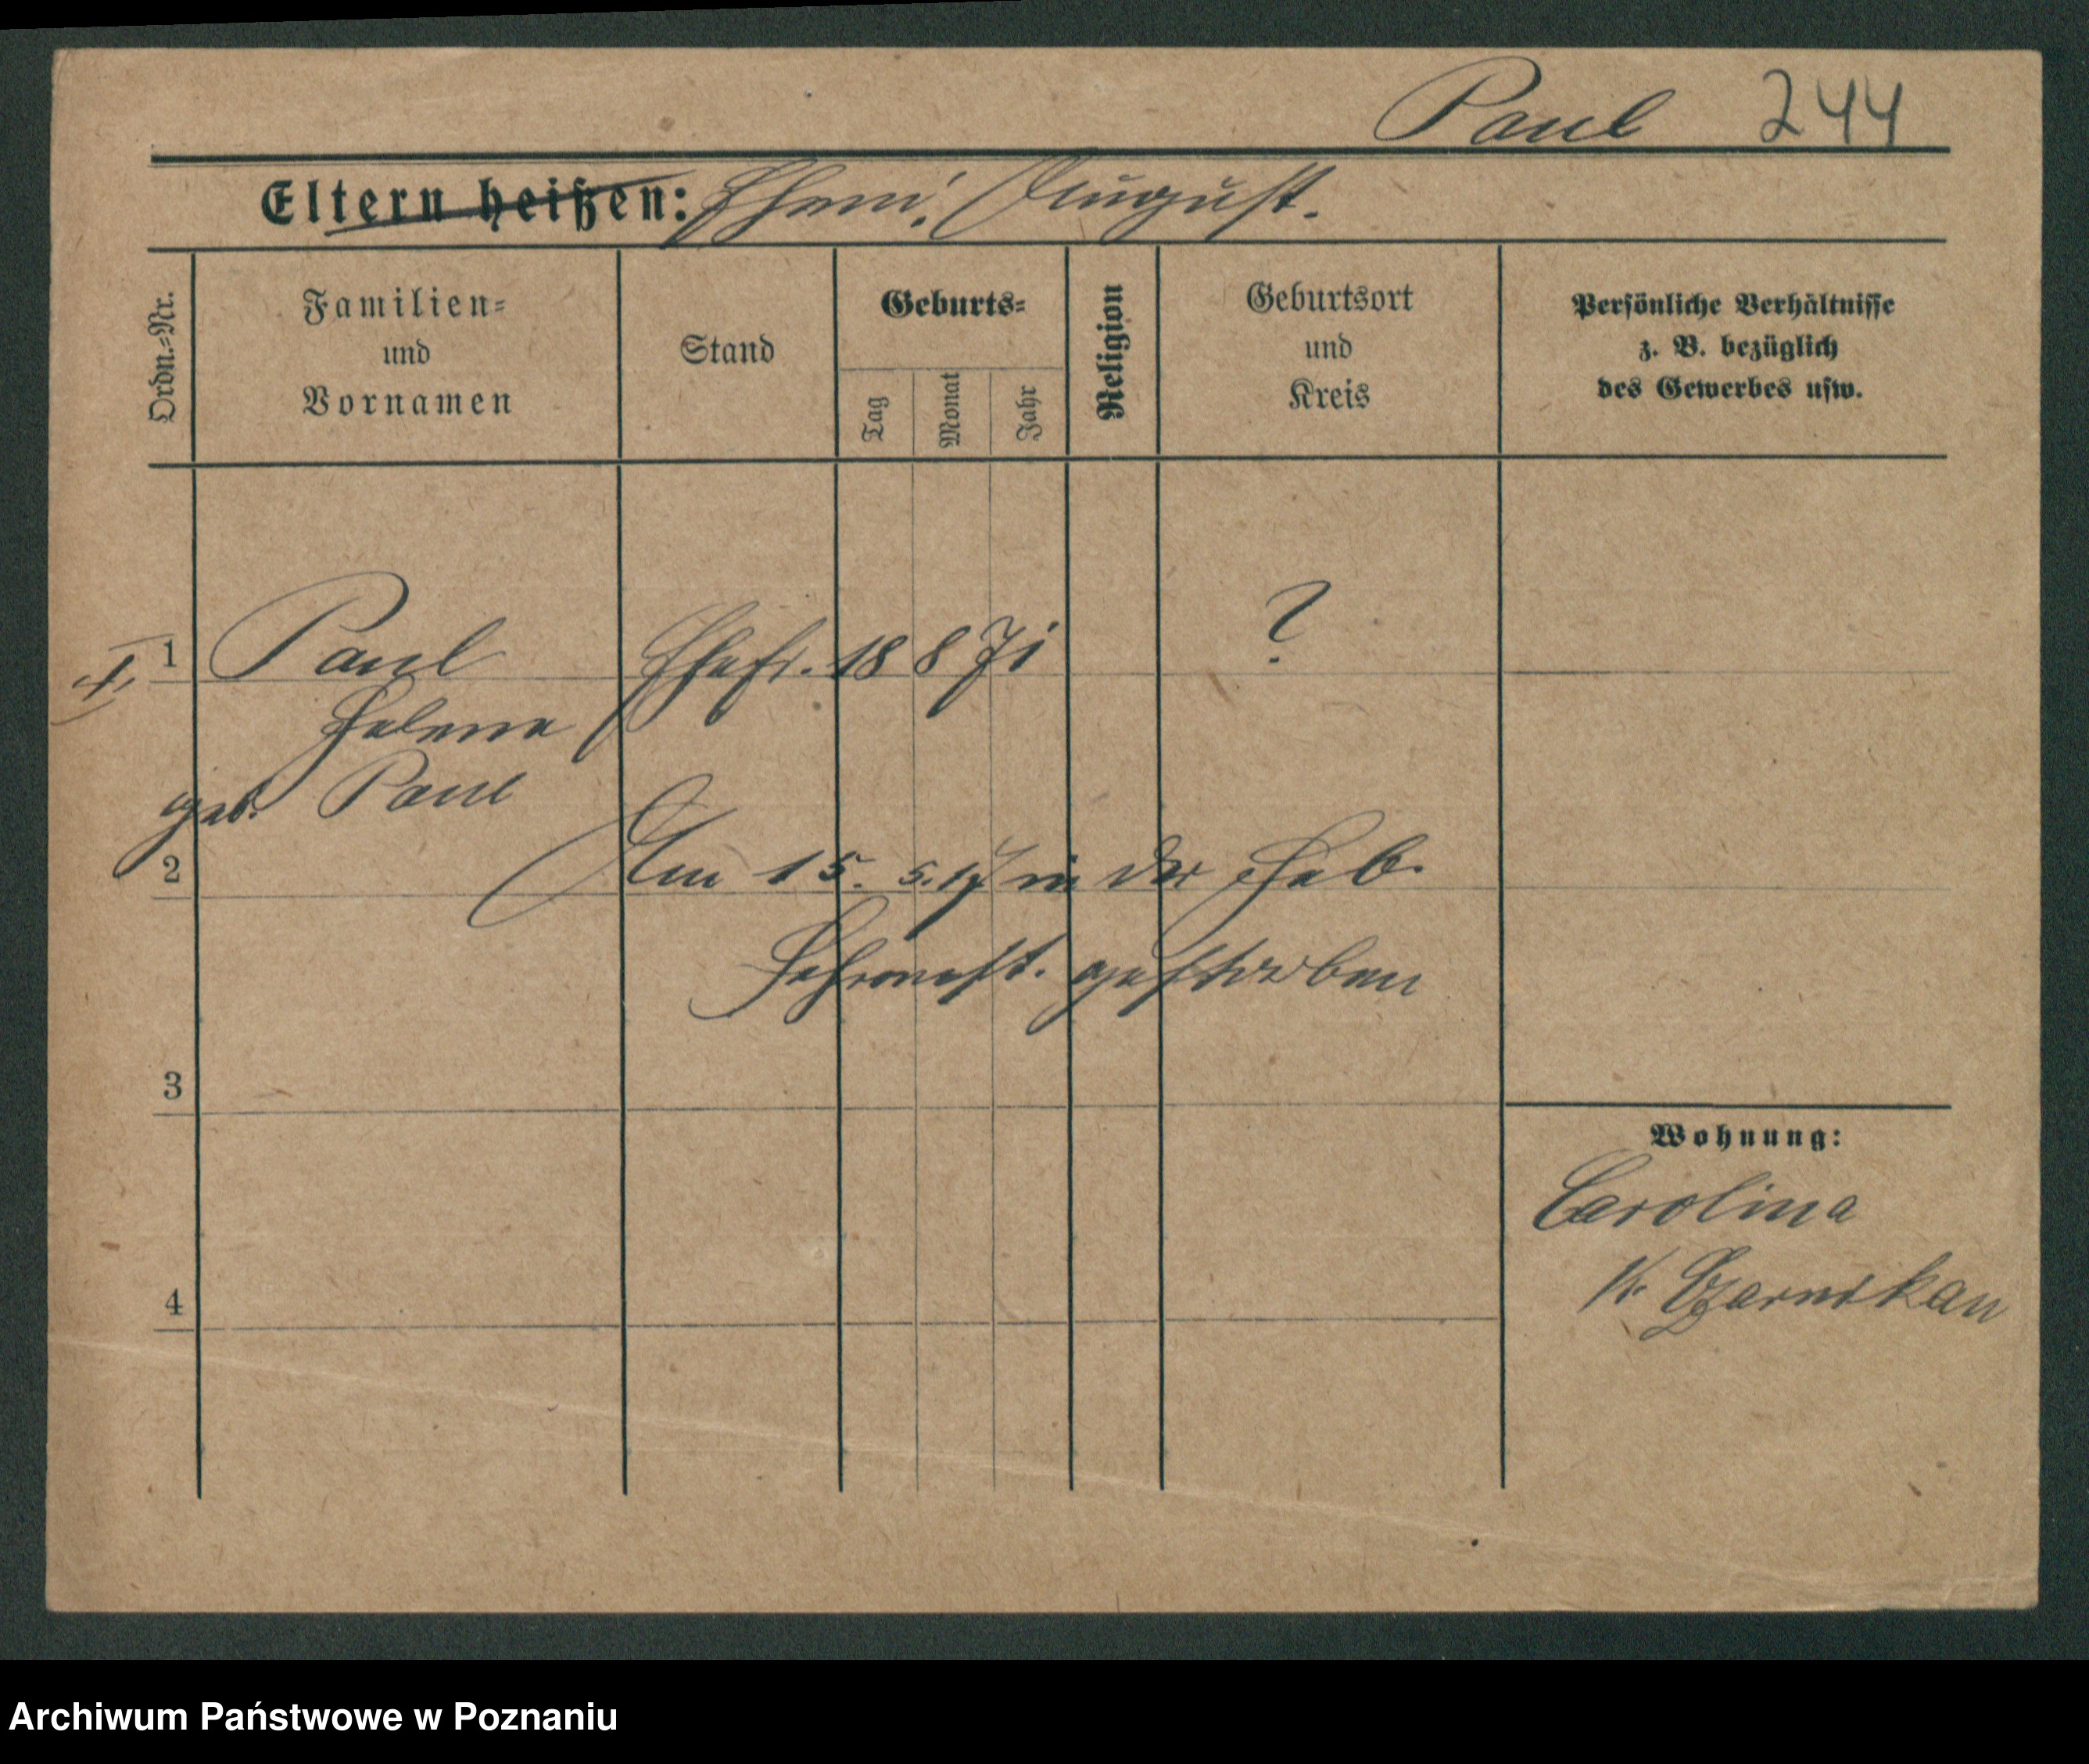 Paul 244
Eltern heißen: Ehem: August.
Ordn.-Nr.
Familien-
und
Vornamen
Stand
Geburts-
Tag
Monat
Jahr
Religion
Geburtsort
und
Kreis
Persönliche Verhältnisse
z. B. bezüglich
des Gewerbes usw.
1 Paul Ehefr. 18 8 71 ?
Helene
geb. Paul
2 Am 15. 5. 17 in der Heb.
gestorben
3
Wohnung:
Carolina
K. Czarnikau
4
Archiwum Państwowe w Poznaniu